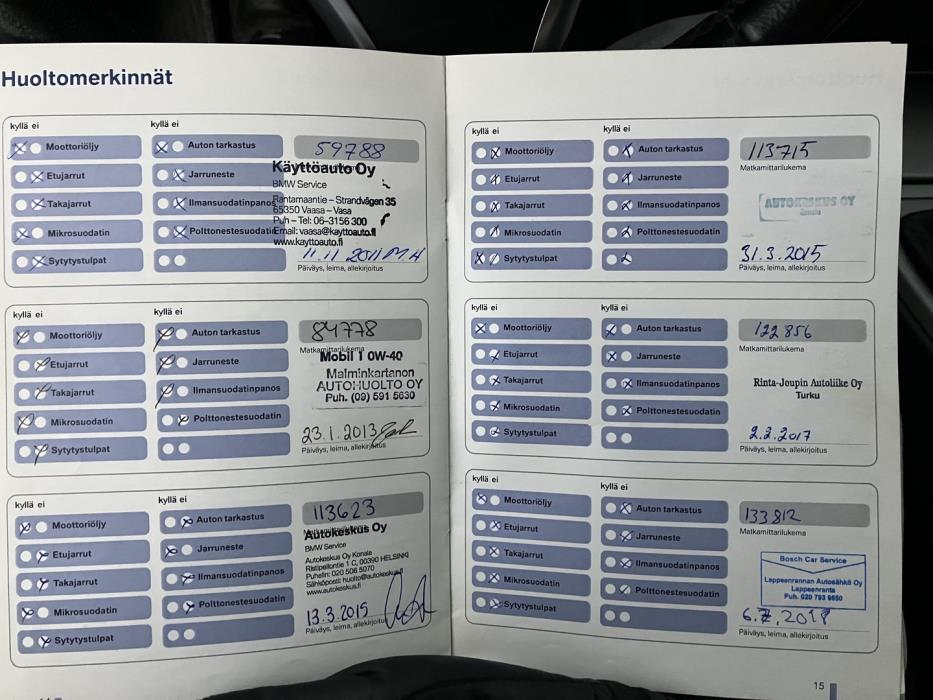 Huoltomerkinnät
kyllä ei
kyllä ei
Moottoriöljy
Auton tarkastus
59788
Etujarrut
Jarruneste
Käyttöauto Oy
BMW Service
Takajarrut
Ilmansuodatinpanos
Rantamaantie – Strandvägen 35
65350 Vaasa – Vasa
Puh – Tel: 06-3156 300
Mikrosuodatin
Polttonestesuodatin
Email: vaasa@kayttoauto.fi
www.kayttoauto.fi
Sytytystulpat
11.11 2011
Päiväys, leima, allekirjoitus
kyllä ei
kyllä ei
Moottoriöljy
Auton tarkastus
84778
Matkamittarilukema
Etujarrut
Jarruneste
Mobil 1 0W-40
Malminkartanon
Takajarrut
Ilmansuodatinpanos
AUTOHUOLTO OY
Puh. (09) 591 5630
Mikrosuodatin
Polttonestesuodatin
Sytytystulpat
23.1.2013
Päiväys, leima, allekirjoitus
kyllä ei
kyllä ei
Moottoriöljy
Auton tarkastus
113623
Matkamittarilukema
Autokeskus Oy
BMW Service
Etujarrut
Jarruneste
Autokeskus Oy Konala
Ristipellontie 1 C, 00390 HELSINKI
Takajarrut
Ilmansuodatinpanos
Puhelin: 020 506 5070
Sähköposti: huolto@autokeskus.fi
www.autokeskus.fi
Mikrosuodatin
Polttonestesuodatin
13.3.2015
Sytytystulpat
Päiväys, leima, allekirjoitus
kyllä ei
kyllä ei
Moottoriöljy
Auton tarkastus
113715
Matkamittarilukema
Etujarrut
Jarruneste
Takajarrut
Ilmansuodatinpanos
AUTOKESKUS OY
Konala
Mikrosuodatin
Polttonestesuodatin
Sytytystulpat
31.3.2015
Päiväys, leima, allekirjoitus
kyllä ei
kyllä ei
Moottoriöljy
Auton tarkastus
122856
Matkamittarilukema
Etujarrut
Jarruneste
Takajarrut
Ilmansuodatinpanos
Rinta-Joupin Autoliike Oy
Turku
Mikrosuodatin
Polttonestesuodatin
Sytytystulpat
2.2.2017
Päiväys, leima, allekirjoitus
kyllä ei
kyllä ei
Moottoriöljy
Auton tarkastus
133812
Matkamittarilukema
Etujarrut
Jarruneste
Takajarrut
Ilmansuodatinpanos
Bosch Car Service
Lappeenrannan Autosähkö Oy
Lappeenranta
Puh. 020 793 9650
Mikrosuodatin
Polttonestesuodatin
Sytytystulpat
6.7.2018
Päiväys, leima, allekirjoitus
15